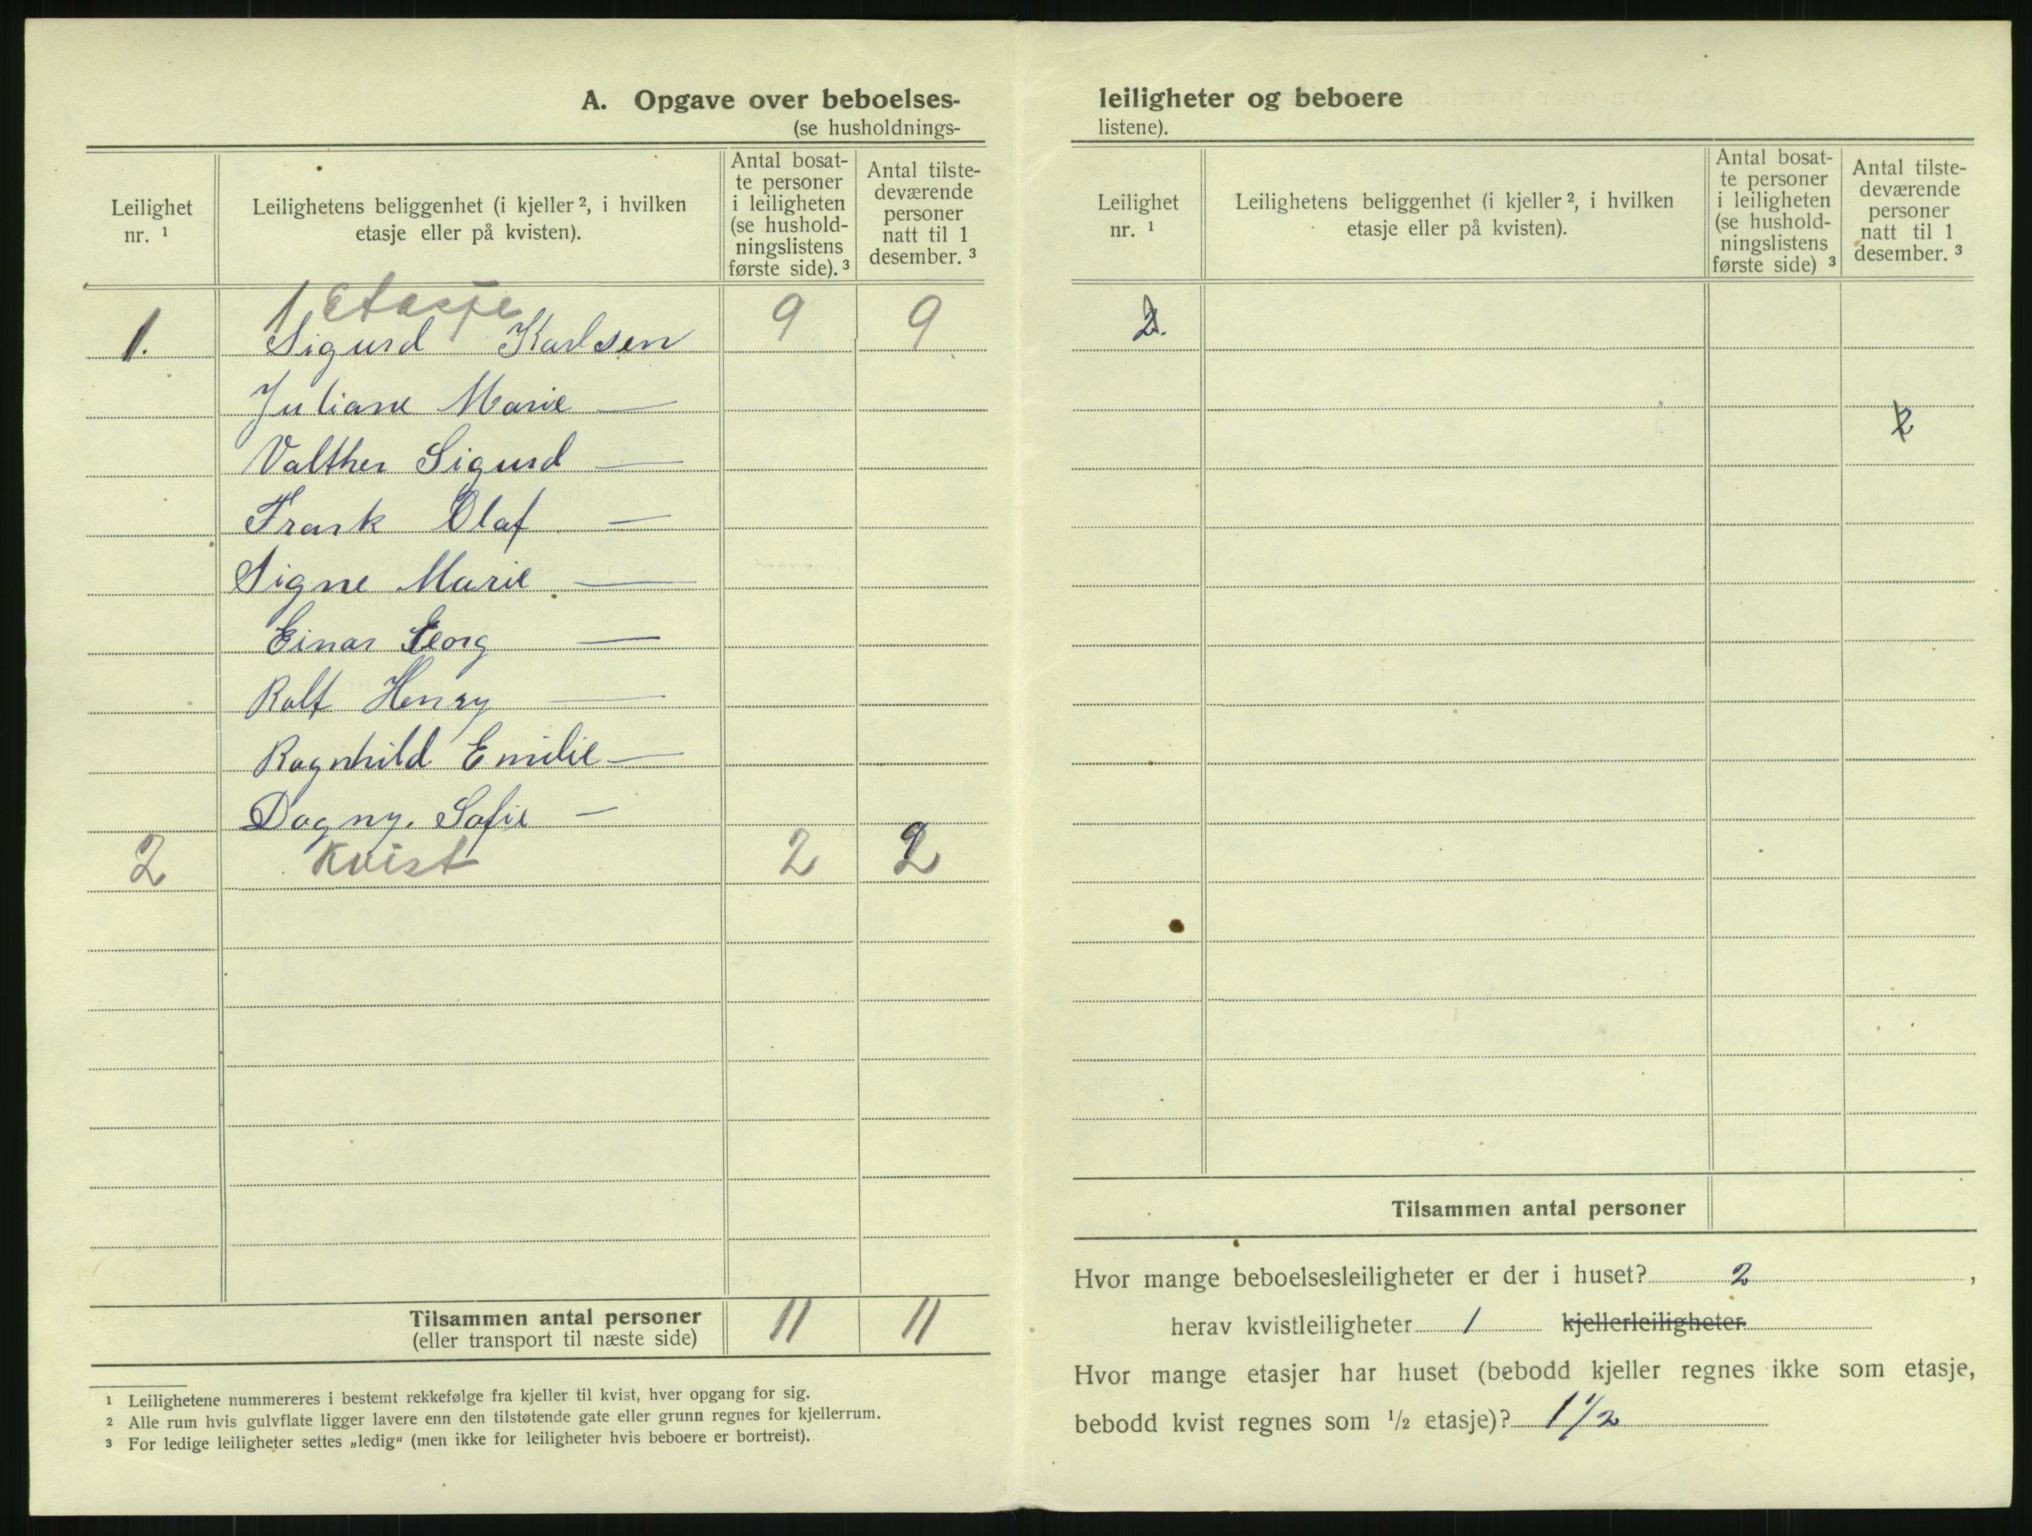 A. Opgave over beboelses-
(se husholdnings-
Leilighet nr. ¹
Leilighetens beliggenhet (i kjeller ², i hvilken etasje eller på kvisten).
Antal bosat-
te personer
i leiligheten
(se hushold-
ningslistens
første side). ³
Antal tilste-
deværende
personer
natt til 1
desember. ³
1 etasje
1. Sigurd Karlsen 9 9
Juliane Marie —
Valther Sigurd —
Frank Olaf —
Signe Marie —
Einar Georg —
Ralf Henry —
Ragnhild Emilie —
Dagny. Sofie —
2 Kvist 2 2
Tilsammen antal personer 11 11
(eller transport til næste side)
¹ Leilighetene nummereres i bestemt rekkefølge fra kjeller til kvist, hver opgang for sig.
² Alle rum hvis gulvflate ligger lavere enn den tilstøtende gate eller grunn regnes for kjellerrum.
³ For ledige leiligheter settes „ledig“ (men ikke for leiligheter hvis beboere er bortreist).
leiligheter og beboere
listene).
Leilighet nr. ¹
Leilighetens beliggenhet (i kjeller ², i hvilken etasje eller på kvisten).
Antal bosat-
te personer
i leiligheten
(se hushold-
ningslistens
første side) ³
Antal tilste-
deværende
personer
natt til 1
desember. ³
2.
2
Tilsammen antal personer
Hvor mange beboelsesleiligheter er der i huset? 2 ,
herav kvistleiligheter 1 kjellerleiligheter
Hvor mange etasjer har huset (bebodd kjeller regnes ikke som etasje,
bebodd kvist regnes som ½ etasje)? 1 ½